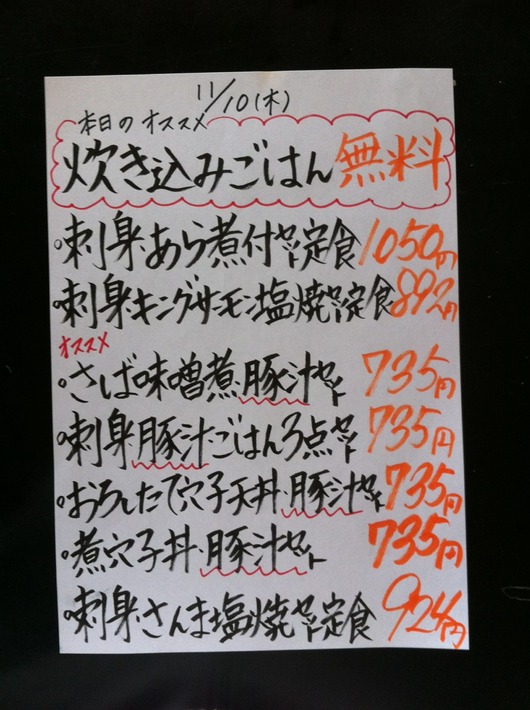 11/10(木)
本日のオススメ
炊き込みごはん無料
刺身・あら煮付セット定食1050円
刺身・キングサーモン塩焼セット定食892円
オススメ
さば味噌煮・豚汁セット 735円
刺身豚汁ごはん3点セット 735円
おろしたて穴子天丼・豚汁セット735円
煮穴子丼・豚汁セット 735円
刺身・さんま塩焼セット定食 924円